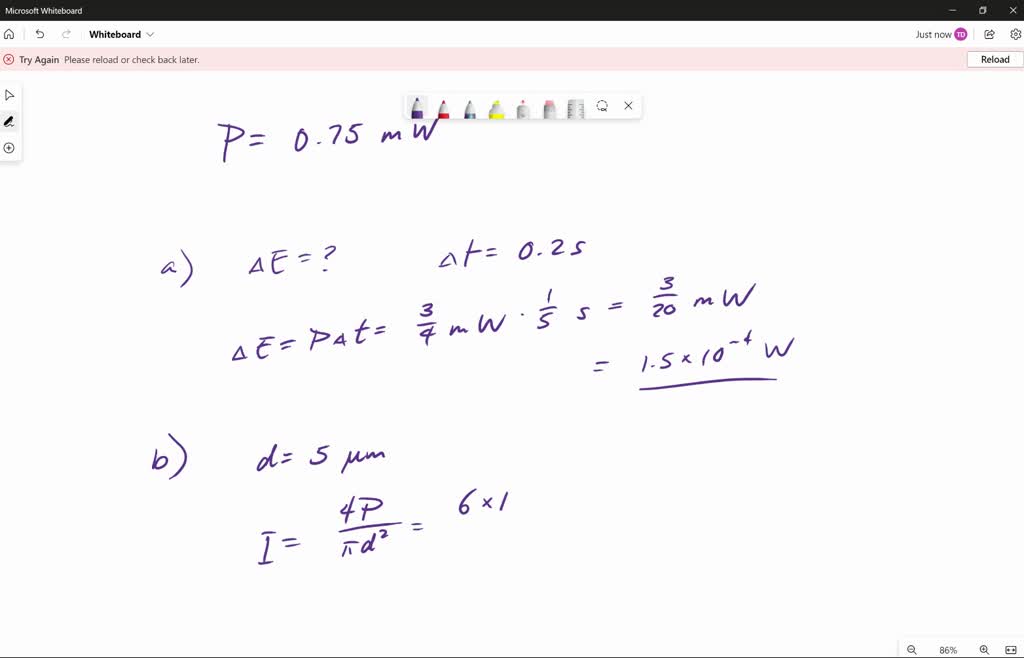 Microsoft Whiteboard
Whiteboard
Just now TD
Try Again Please reload or check back later.
Reload
P = 0.75 mW
a) ΔE = ? Δt = 0.2 s
ΔE = PΔt = 3/4 mW · 1/5 s = 3/20 mW
= 1.5 × 10⁻⁴ W
b) d = 5 μm
I = 4P/πd² = 6 × 1
86%